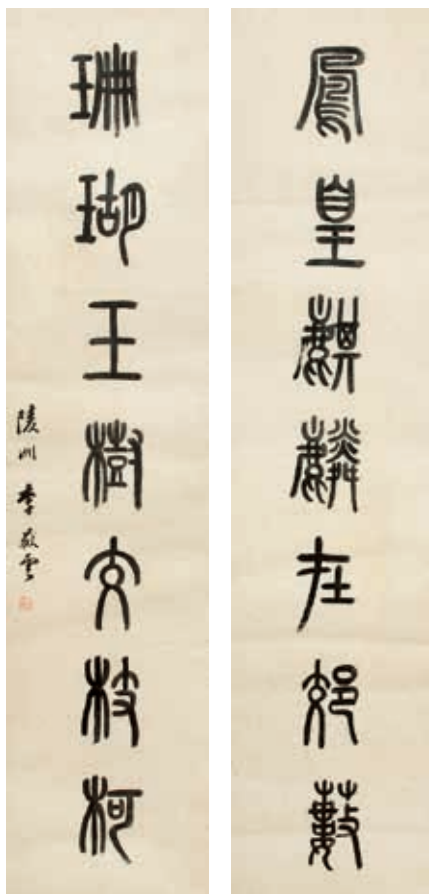 鳳皇麒麟在郊藪
珊瑚玉樹交枝柯
陵州 李雲